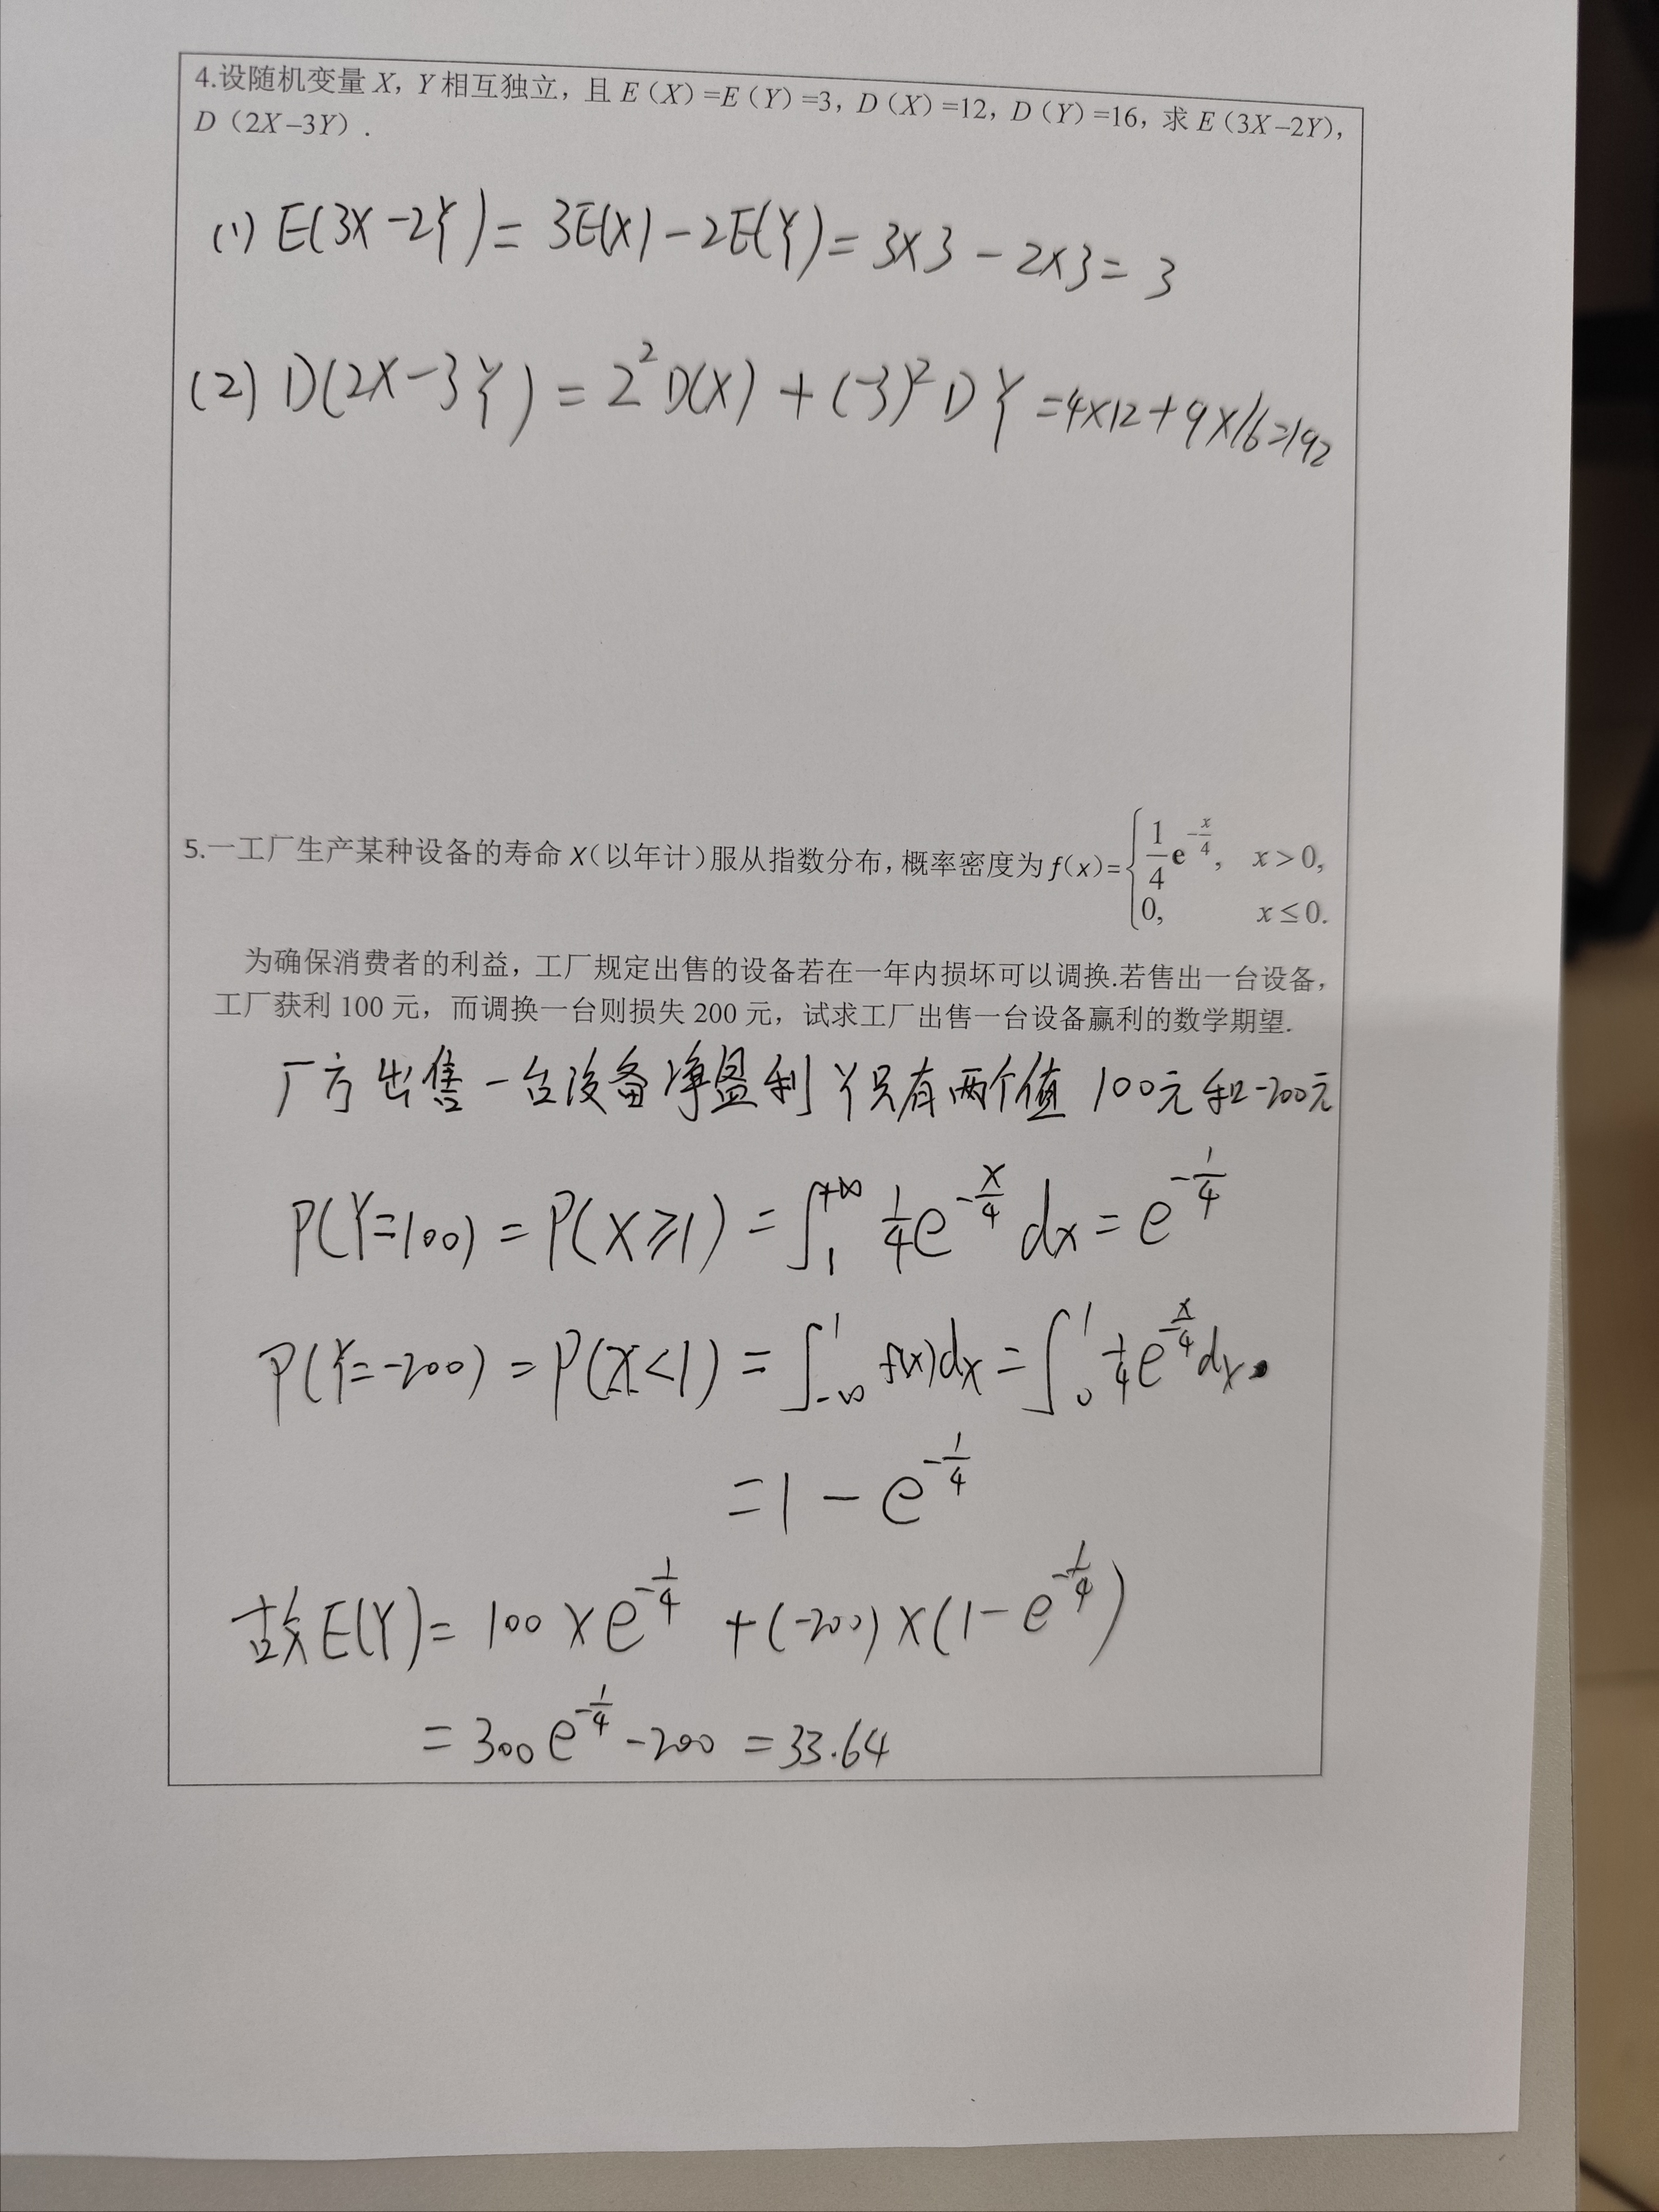 4.设随机变量 X，Y 相互独立，且 E（X）=E（Y）=3，D（X）=12，D（Y）=16，求 E（3X−2Y），
D（2X−3Y）.
(1) E(3X−2Y) = 3E(X)−2E(Y) = 3×3 − 2×3 = 3
(2) D(2X−3Y) = 2²D(X) + (−3)²DY = 4×12+9×16=192
5.一工厂生产某种设备的寿命 X（以年计）服从指数分布，概率密度为 f(x)={ 1/4 e^{-x/4}, x>0,
0, x≤0.
为确保消费者的利益，工厂规定出售的设备若在一年内损坏可以调换.若售出一台设备，
工厂获利 100 元，而调换一台则损失 200 元，试求工厂出售一台设备赢利的数学期望.
厂方出售一台设备净盈利 Y只有两个值 100元和-200元
P(Y=100) = P(X≥1) = ∫_1^{+∞} 1/4 e^{-x/4} dx = e^{-1/4}
P(Y=-200) = P(X<1) = ∫_{-∞}^1 f(x)dx = ∫_0^1 1/4 e^{-x/4} dx.
= 1 − e^{-1/4}
故E(Y) = 100×e^{-1/4} + (-200)×(1−e^{-1/4})
= 300e^{-1/4} −200 = 33.64